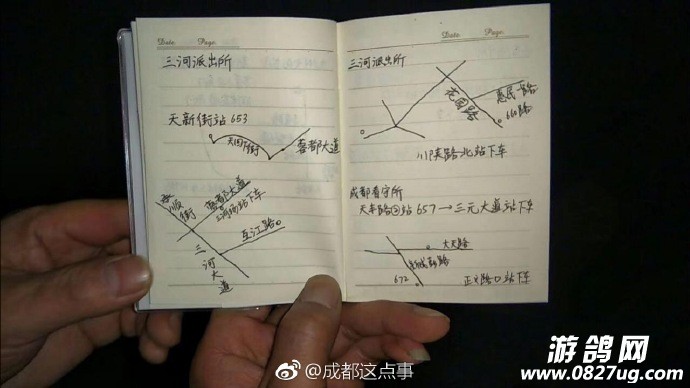 Date Page
三河派出所
天新街站 653
天回下街
蓉都大道
顺街
蓉都大道
三河场站下车
互江路
三河大道
Date Page
三河派出所
花园路
惠民一路
660路
川陕路北站下车
成都看守所
天丰路口站 657→三元大道站下车
大天路
672
正义路口站下车
@成都这点事
游鸽网
www.0827ug.com